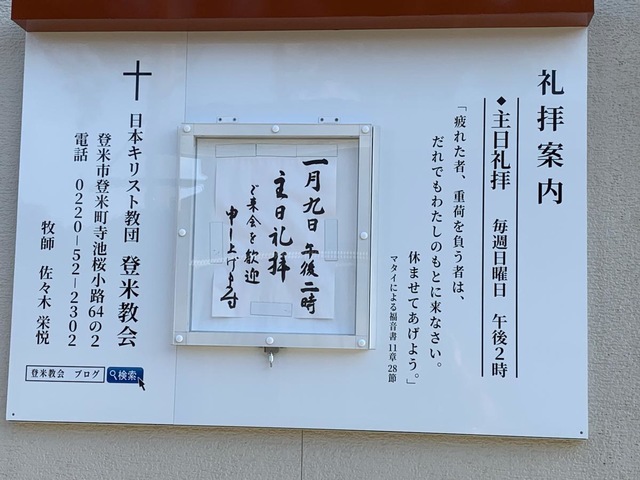 礼拝案内
◆主日礼拝　毎週日曜日　午後２時
「疲れた者、重荷を負う者は、
だれでもわたしのもとに来なさい。
休ませてあげよう。」
マタイによる福音書 11章 28節
一月九日 午後二時
主日礼拝
ご来会を歓迎
申し上げます
日本キリスト教団 登米教会
登米市登米町寺池桜小路64の2
電話　０２２０－５２－２３０２
牧師　佐々木 栄悦
登米教会　ブログ　検索